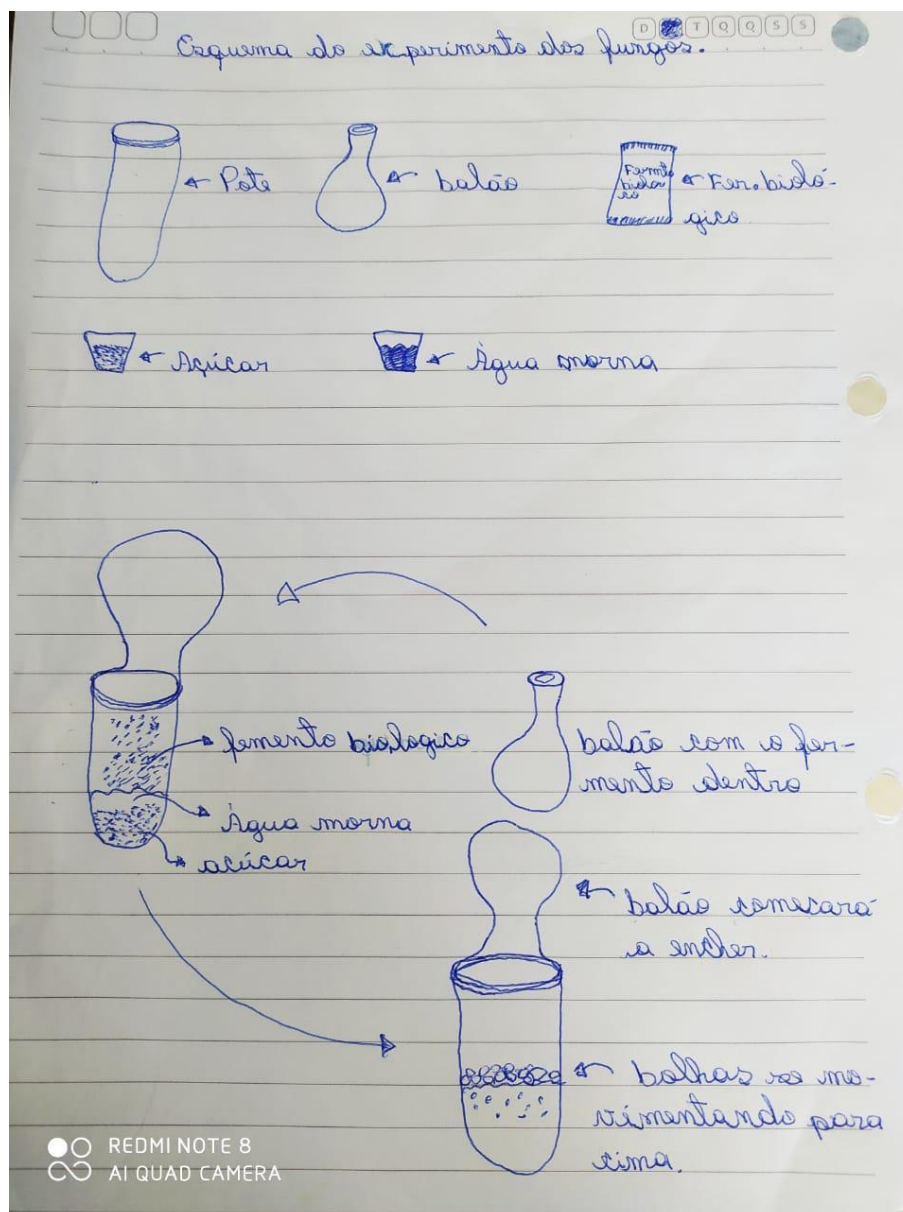 D S T Q Q S S
Esquema do experimento dos fungos.
Pote
balão
Fermto
biolor
co
Fer. bioló-
gico
Açúcar
Água morna
femento biologico
Água morna
açúcar
balão com o fer-
mento dentro
balão comecará
a encher.
bolhas se mo-
vimentando para
cima.
REDMI NOTE 8
AI QUAD CAMERA